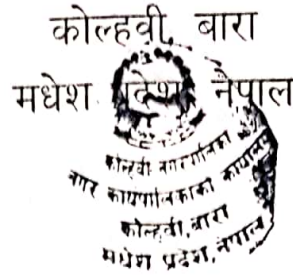 कोल्हवी, बारा
मधेश प्रदेश नेपाल
कोल्हवी नगरपालिका
नगर कार्यपालिकाको कार्यालय
कोल्हवी, बारा
मधेश प्रदेश, नेपाल